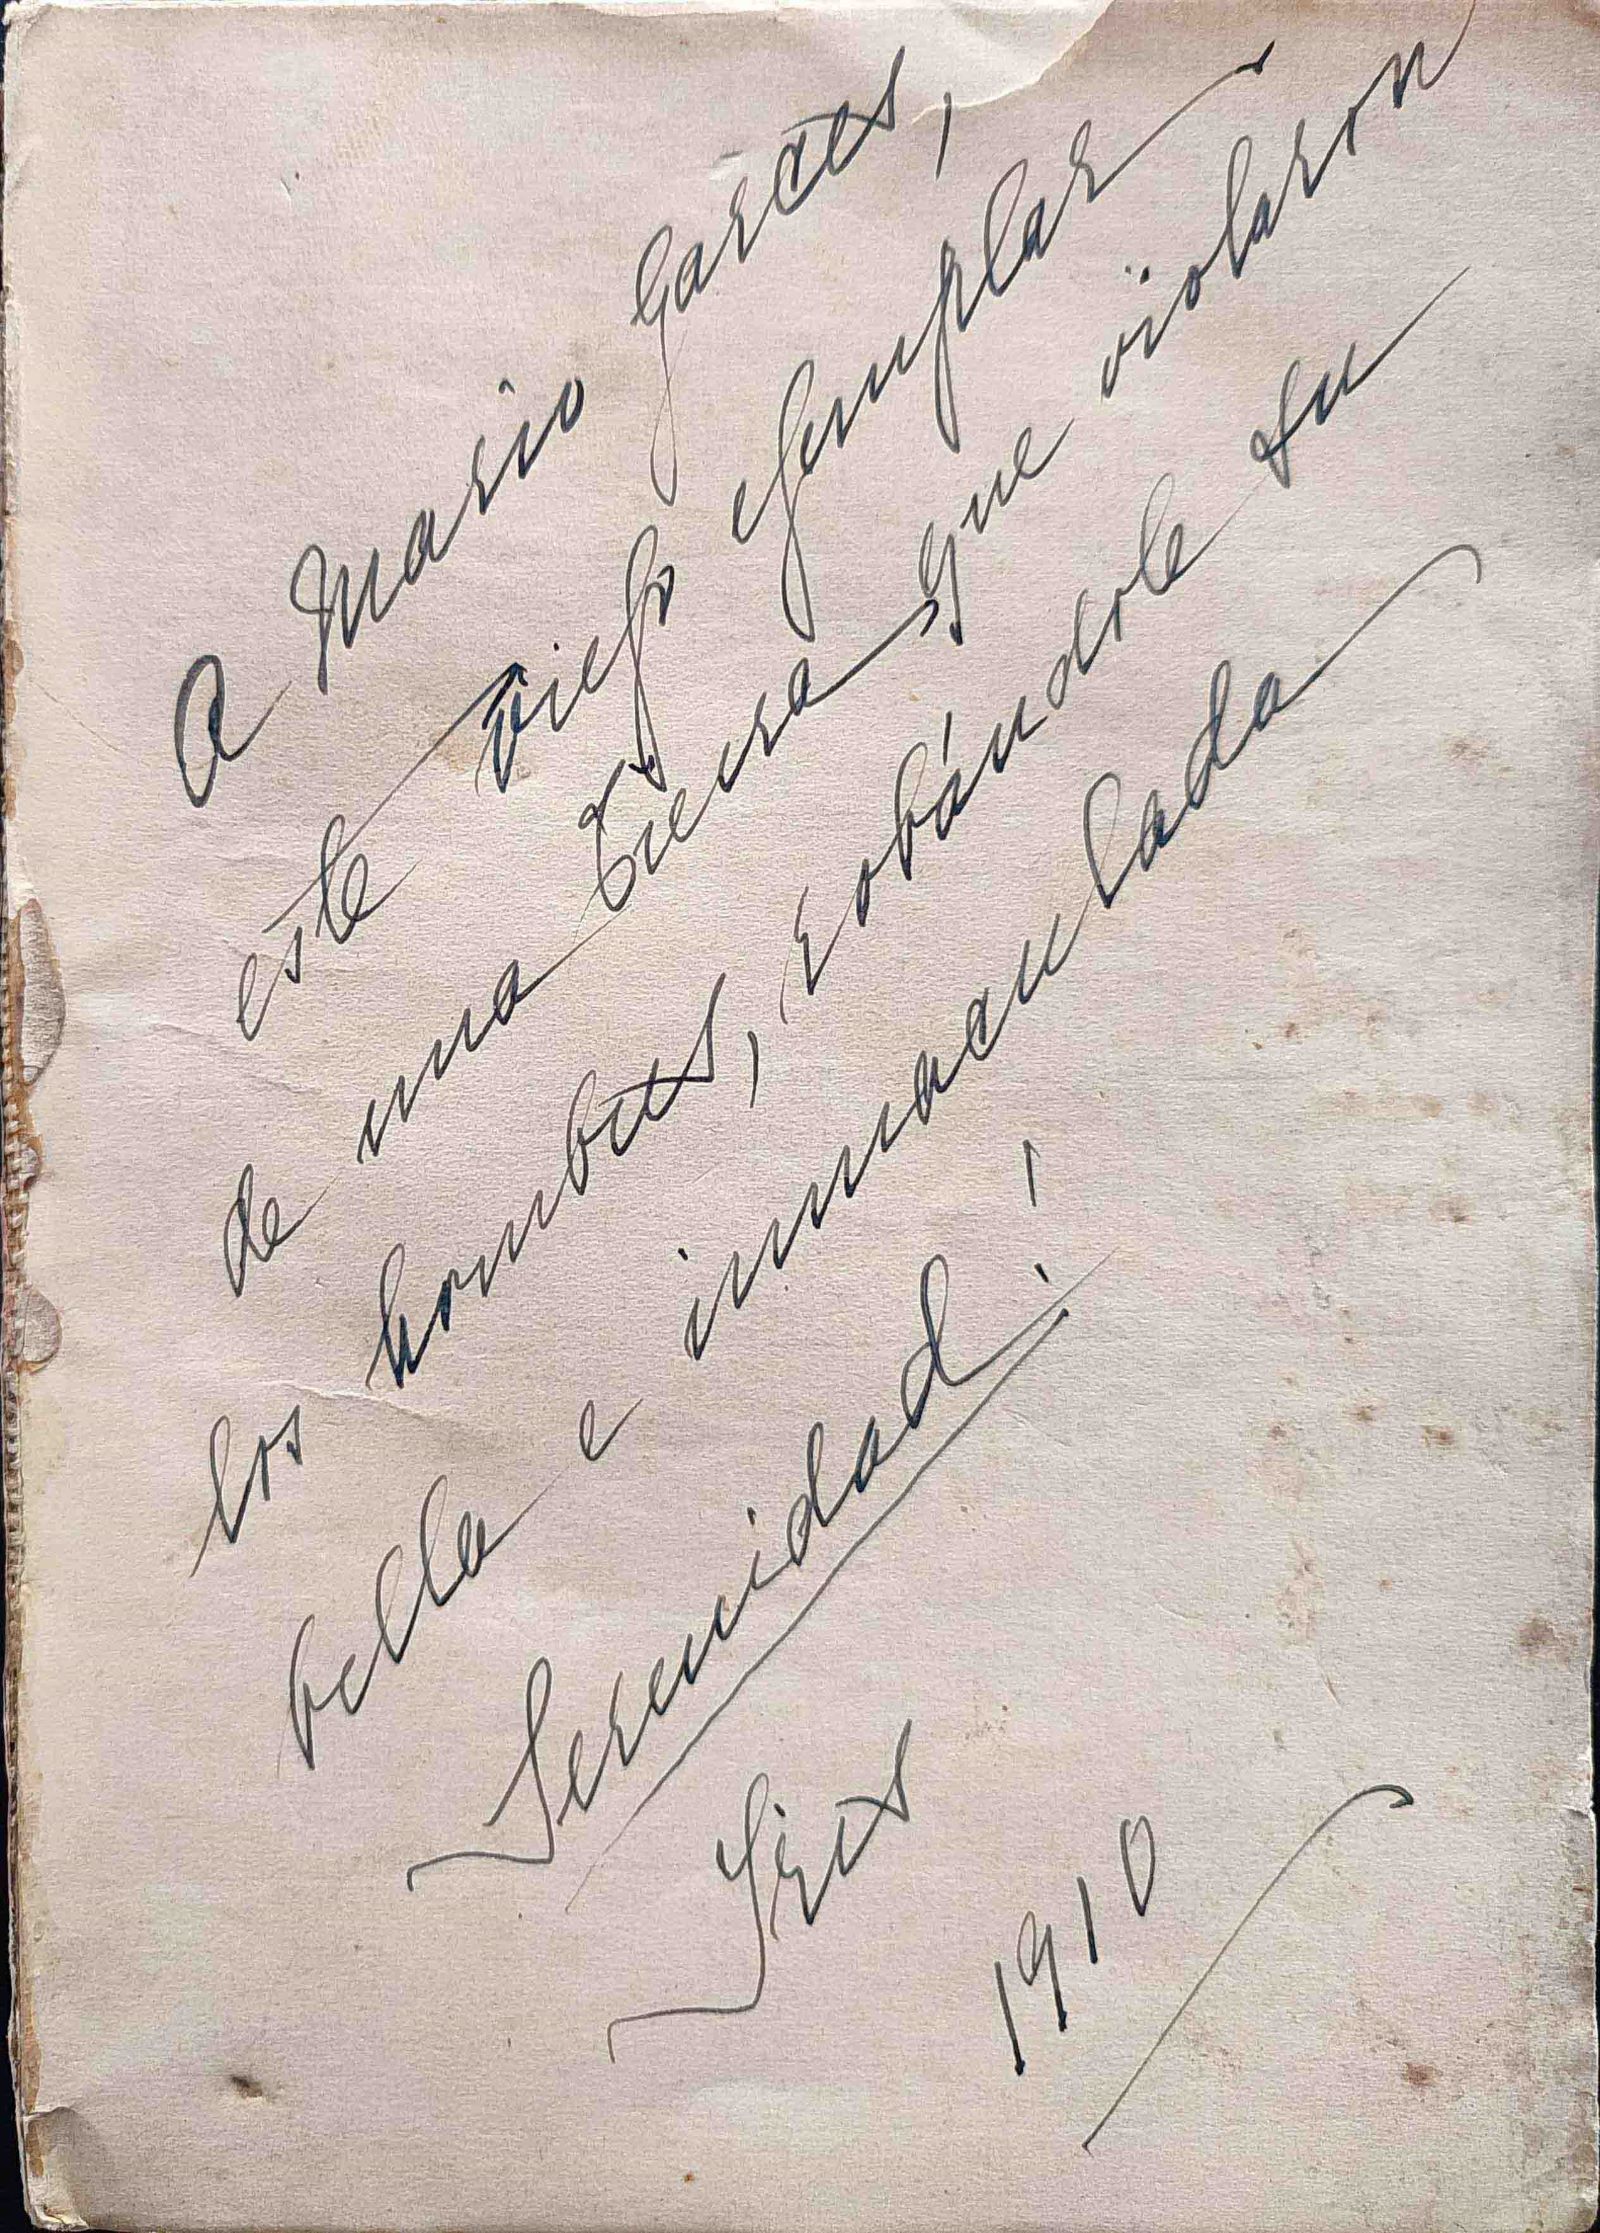 A Mario Garces,
este viejo ejemplar
de una tierra que violaron
los hombres, robándole su
bella e inmaculada
Serenidad!
1910